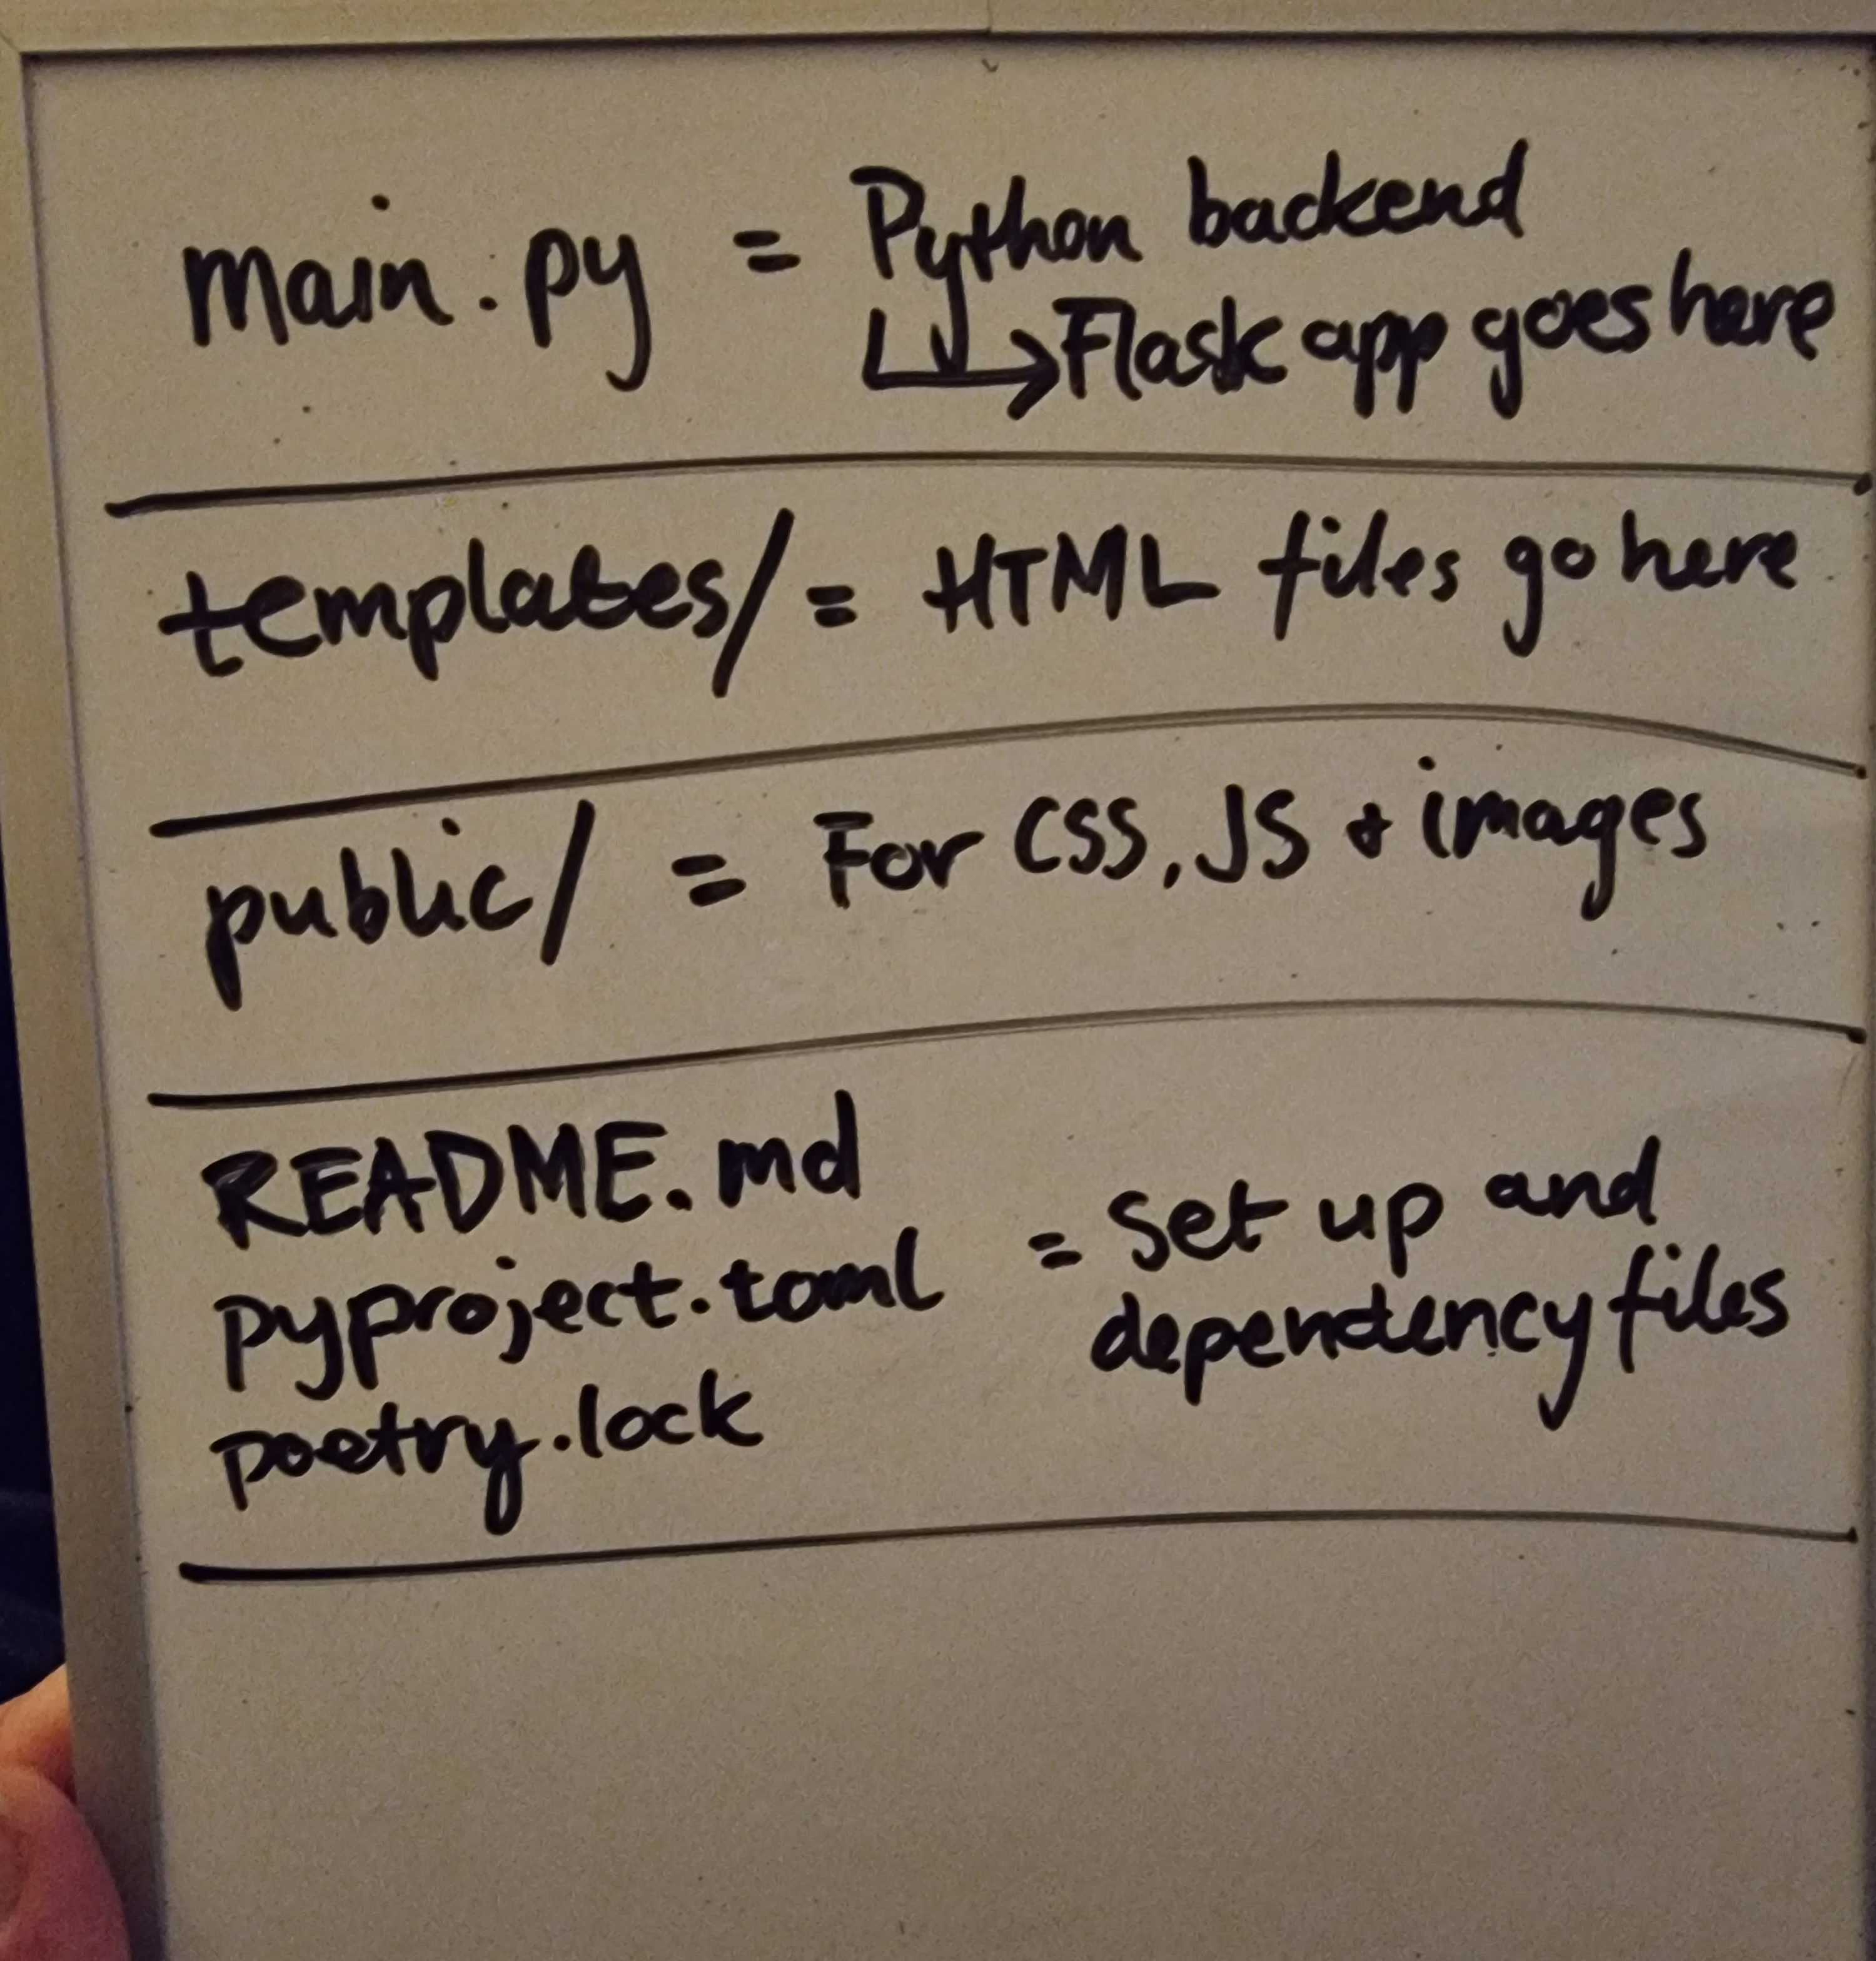 main.py = Python backend
↳Flask app goes here
templates/ = HTML files go here
public/ = For CSS, JS + images
README.md
pyproject.toml
poetry.lock
= Set up and
dependency files